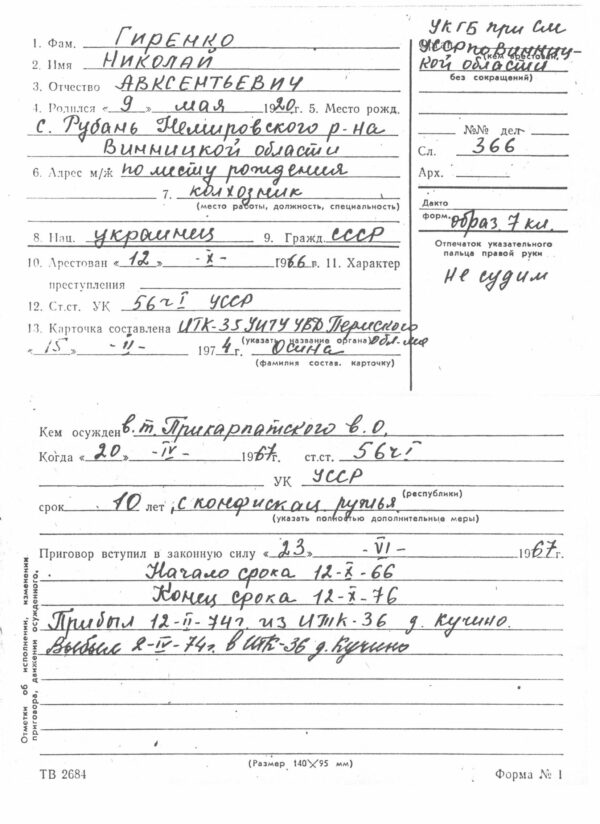 1. Фам. Гиренко
2. Имя Николай
3. Отчество Авксентьевич
4. Родился «9» мая 1920г. 5. Место рожд.
с. Рубань Немировского р-на
Винницкой области
6. Адрес м/ж по месту рождения
7. колхозник
(место работы, должность, специальность)
8. Нац. украинец 9. Гражд. СССР
10. Арестован «12» -X- 1966 г. 11. Характер
преступления
12. Ст.ст. УК 56 ч I УССР
13. Карточка составлена ИТК-35 УИТУ УВД Пермского
(указать название органа) обл.
«15» -II- 1974г. Осина
(фамилия состав. карточку)
УКГБ при СМ
УССР по Винниц-
(кем арестован,
кой области
без сокращений)
№№ дел
Сл. 366
Арх.
Дакто
форм. образ. 7 кл.
Отпечаток указательного
пальца правой руки
Не судим
Кем осужден в.т. Прикарпатского в.о.
Когда «20» -IV- 1967г. ст.ст. 56 ч I
УК УССР
(республики)
срок 10 лет, с конфискац. ружья
(указать полностью дополнительные меры)
Приговор вступил в законную силу «23» -VI- 1967г.
Начало срока 12-X-66
Конец срока 12-X-76
Прибыл 12-II-74г. из ИТК-36 д. Кучино.
Выбыл 2-IV-74г. в ИТК-36 д. Кучино
Отметки об исполнении, изменении
приговора, движении осужденного.
(Размер 140×95 мм)
ТВ 2684 Форма № 1